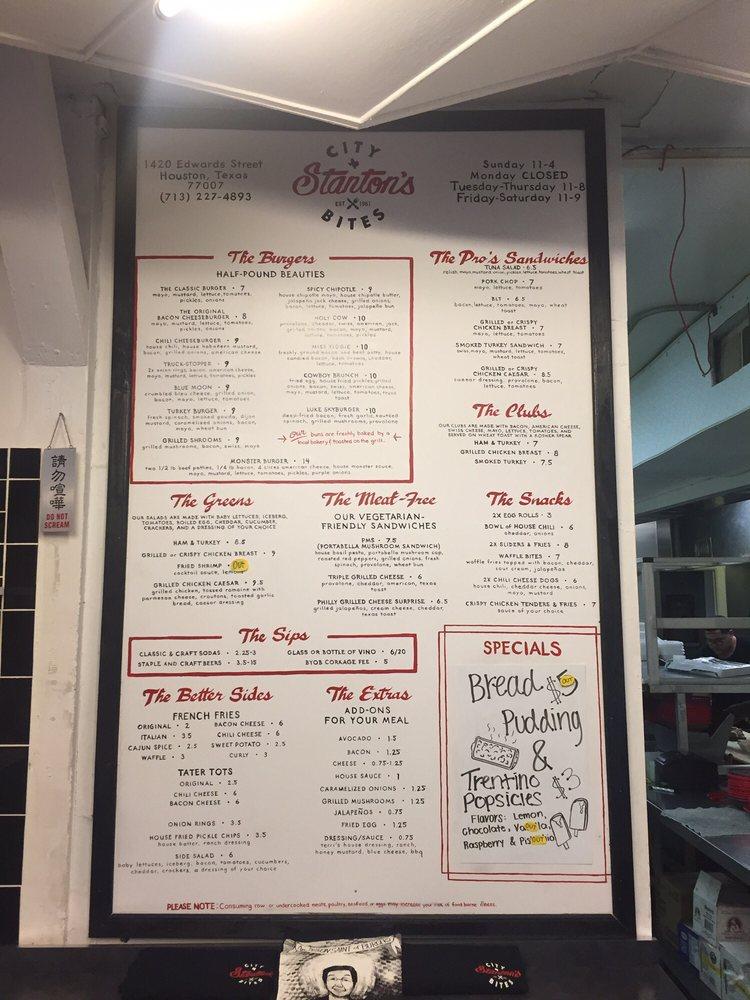 1420 Edwards Street
Houston, Texas
77007
(713) 227-4893
CITY
Stanton's
EST 1961
BITES
Sunday 11-4
Monday CLOSED
Tuesday-Thursday 11-8
Friday-Saturday 11-9
The Burgers
HALF-POUND BEAUTIES
THE CLASSIC BURGER • 7
mayo, mustard, lettuce, tomatoes,
pickles, onions
THE ORIGINAL
BACON CHEESEBURGER • 8
mayo, mustard, lettuce, tomatoes,
pickles, onions
CHILI CHEESEBURGER • 9
house chili, house habañero mustard,
bacon, grilled onions, american cheese
TRUCK-STOPPER • 9
2x onion rings, bacon, american cheese,
mayo, mustard, lettuce, pickles
BLUE MOON • 9
crumbled bleu cheese, grilled onion,
bacon, mayo, lettuce, tomatoes
TURKEY BURGER • 9
fresh spinach, smoked gouda, dijon
mustard, caramelized onions, bacon,
mayo, wheat bun
GRILLED SHROOMS • 9
grilled mushrooms, bacon, swiss, mayo
SPICY CHIPOTLE • 9
house chipotle mayo, house chipotle butter,
jalapeño jack cheese, grilled onions,
bacon, lettuce, tomatoes, jalapeño bun
HOLY COW • 10
provolone, cheddar, swiss, american, jack,
grilled onions, bacon, mayo, mustard,
lettuce, tomatoes, pickles
MISS PIGGIE • 10
freshly ground bacon and beef patty, house
candied bacon, hash browns, cheddar,
lettuce, tomatoes
COWBOY BRUNCH • 10
fried egg, house fried pickles, grilled
onions, bacon, swiss, american cheese,
mayo, mustard, lettuce, tomatoes, texas
toast
LUKE SKYBURGER • 10
deep-fried bacon, fresh garlic, sauteed
spinach, grilled mushrooms, provolone
our buns are freshly baked by a
local bakery & toasted on the grill.
MONSTER BURGER • 14
two 1/2 lb beef patties, 1/4 lb bacon, 4 slices american cheese, house monster sauce,
mayo, mustard, lettuce, tomatoes, pickles, purple onions
The Pro's Sandwiches
TUNA SALAD • 6.5
relish, mayo, mustard, onion, pickles, lettuce, tomatoes, wheat toast
PORK CHOP • 7
mayo, lettuce, tomatoes
BLT • 6.5
bacon, lettuce, tomatoes, mayo, wheat
toast
GRILLED or CRISPY
CHICKEN BREAST • 7
mayo, lettuce, tomatoes
SMOKED TURKEY SANDWICH • 7
swiss, mayo, mustard, lettuce, tomatoes,
wheat toast
GRILLED or CRISPY
CHICKEN CAESAR • 8.5
caesar dressing, provolone, bacon,
lettuce, tomatoes
The Clubs
OUR CLUBS ARE MADE WITH BACON, AMERICAN CHEESE,
SWISS CHEESE, MAYO, LETTUCE, TOMATOES, AND
SERVED ON WHEAT TOAST WITH A KOSHER SPEAR
HAM & TURKEY • 7
GRILLED CHICKEN BREAST • 8
SMOKED TURKEY • 7.5
請勿喧嘩
DO NOT
SCREAM
The Greens
OUR SALADS ARE MADE WITH BABY LETTUCES, ICEBERG,
TOMATOES, BOILED EGG, CHEDDAR, CUCUMBER,
CRACKERS, AND A DRESSING OF YOUR CHOICE
HAM & TURKEY • 8.5
GRILLED or CRISPY CHICKEN BREAST • 9
FRIED SHRIMP • OUT
cocktail sauce, lemons
GRILLED CHICKEN CAESAR • 9.5
grilled chicken, tossed romaine with
parmesan cheese, croutons, toasted garlic
bread, caesar dressing
The Meat-Free
OUR VEGETARIAN-
FRIENDLY SANDWICHES
PMS • 7.5
(PORTABELLA MUSHROOM SANDWICH)
house basil pesto, portabella mushroom cap,
roasted red peppers, grilled onions, fresh
spinach, provolone, wheat bun
TRIPLE GRILLED CHEESE • 6
provolone, cheddar, american, texas
toast
PHILLY GRILLED CHEESE SURPRISE • 6.5
grilled jalapeños, cream cheese, cheddar,
texas toast
The Snacks
2X EGG ROLLS • 3
BOWL of HOUSE CHILI • 6
cheddar, onions
2X SLIDERS & FRIES • 8
WAFFLE BITES • 7
waffle fries topped with bacon, cheddar,
sour cream, jalapeños
2X CHILI CHEESE DOGS • 6
house chili, cheddar cheese, onions,
mayo, mustard
CRISPY CHICKEN TENDERS & FRIES • 7
sauce of your choice
The Sips
CLASSIC & CRAFT SODAS • 2.25-3
STAPLE AND CRAFT BEERS • 3.5-15
GLASS OR BOTTLE OF VINO • 6/20
BYOB CORKAGE FEE • 5
The Better Sides
FRENCH FRIES
ORIGINAL • 2
ITALIAN • 3.5
CAJUN SPICE • 2.5
WAFFLE • 3
BACON CHEESE • 6
CHILI CHEESE • 6
SWEET POTATO • 2.5
CURLY • 3
TATER TOTS
ORIGINAL • 2.5
CHILI CHEESE • 6
BACON CHEESE • 6
ONION RINGS • 3.5
HOUSE FRIED PICKLE CHIPS • 3.5
house batter, ranch dressing
SIDE SALAD • 6
baby lettuces, iceberg, bacon, tomatoes, cucumbers,
cheddar, crackers, a dressing of your choice
The Extras
ADD-ONS
FOR YOUR MEAL
AVOCADO • 1.5
BACON • 1.25
CHEESE • 0.75-1.25
HOUSE SAUCE • 1
CARAMELIZED ONIONS • 1.25
GRILLED MUSHROOMS • 1.25
JALAPEÑOS • 0.75
FRIED EGG • 1.25
DRESSING/SAUCE • 0.75
terri's house dressing, ranch,
honey mustard, blue cheese, bbq
SPECIALS
Bread $5 OUT
Pudding
&
Trentino $3
Popsicles
Flavors: Lemon,
Chocolate, Va OUT la,
Raspberry & Pis OUT hio
PLEASE NOTE: Consuming raw or undercooked meats, poultry, seafood, or eggs may increase your risk of food borne illness.
CITY
Stanton's
BITES
CITY
Stanton's
BITES